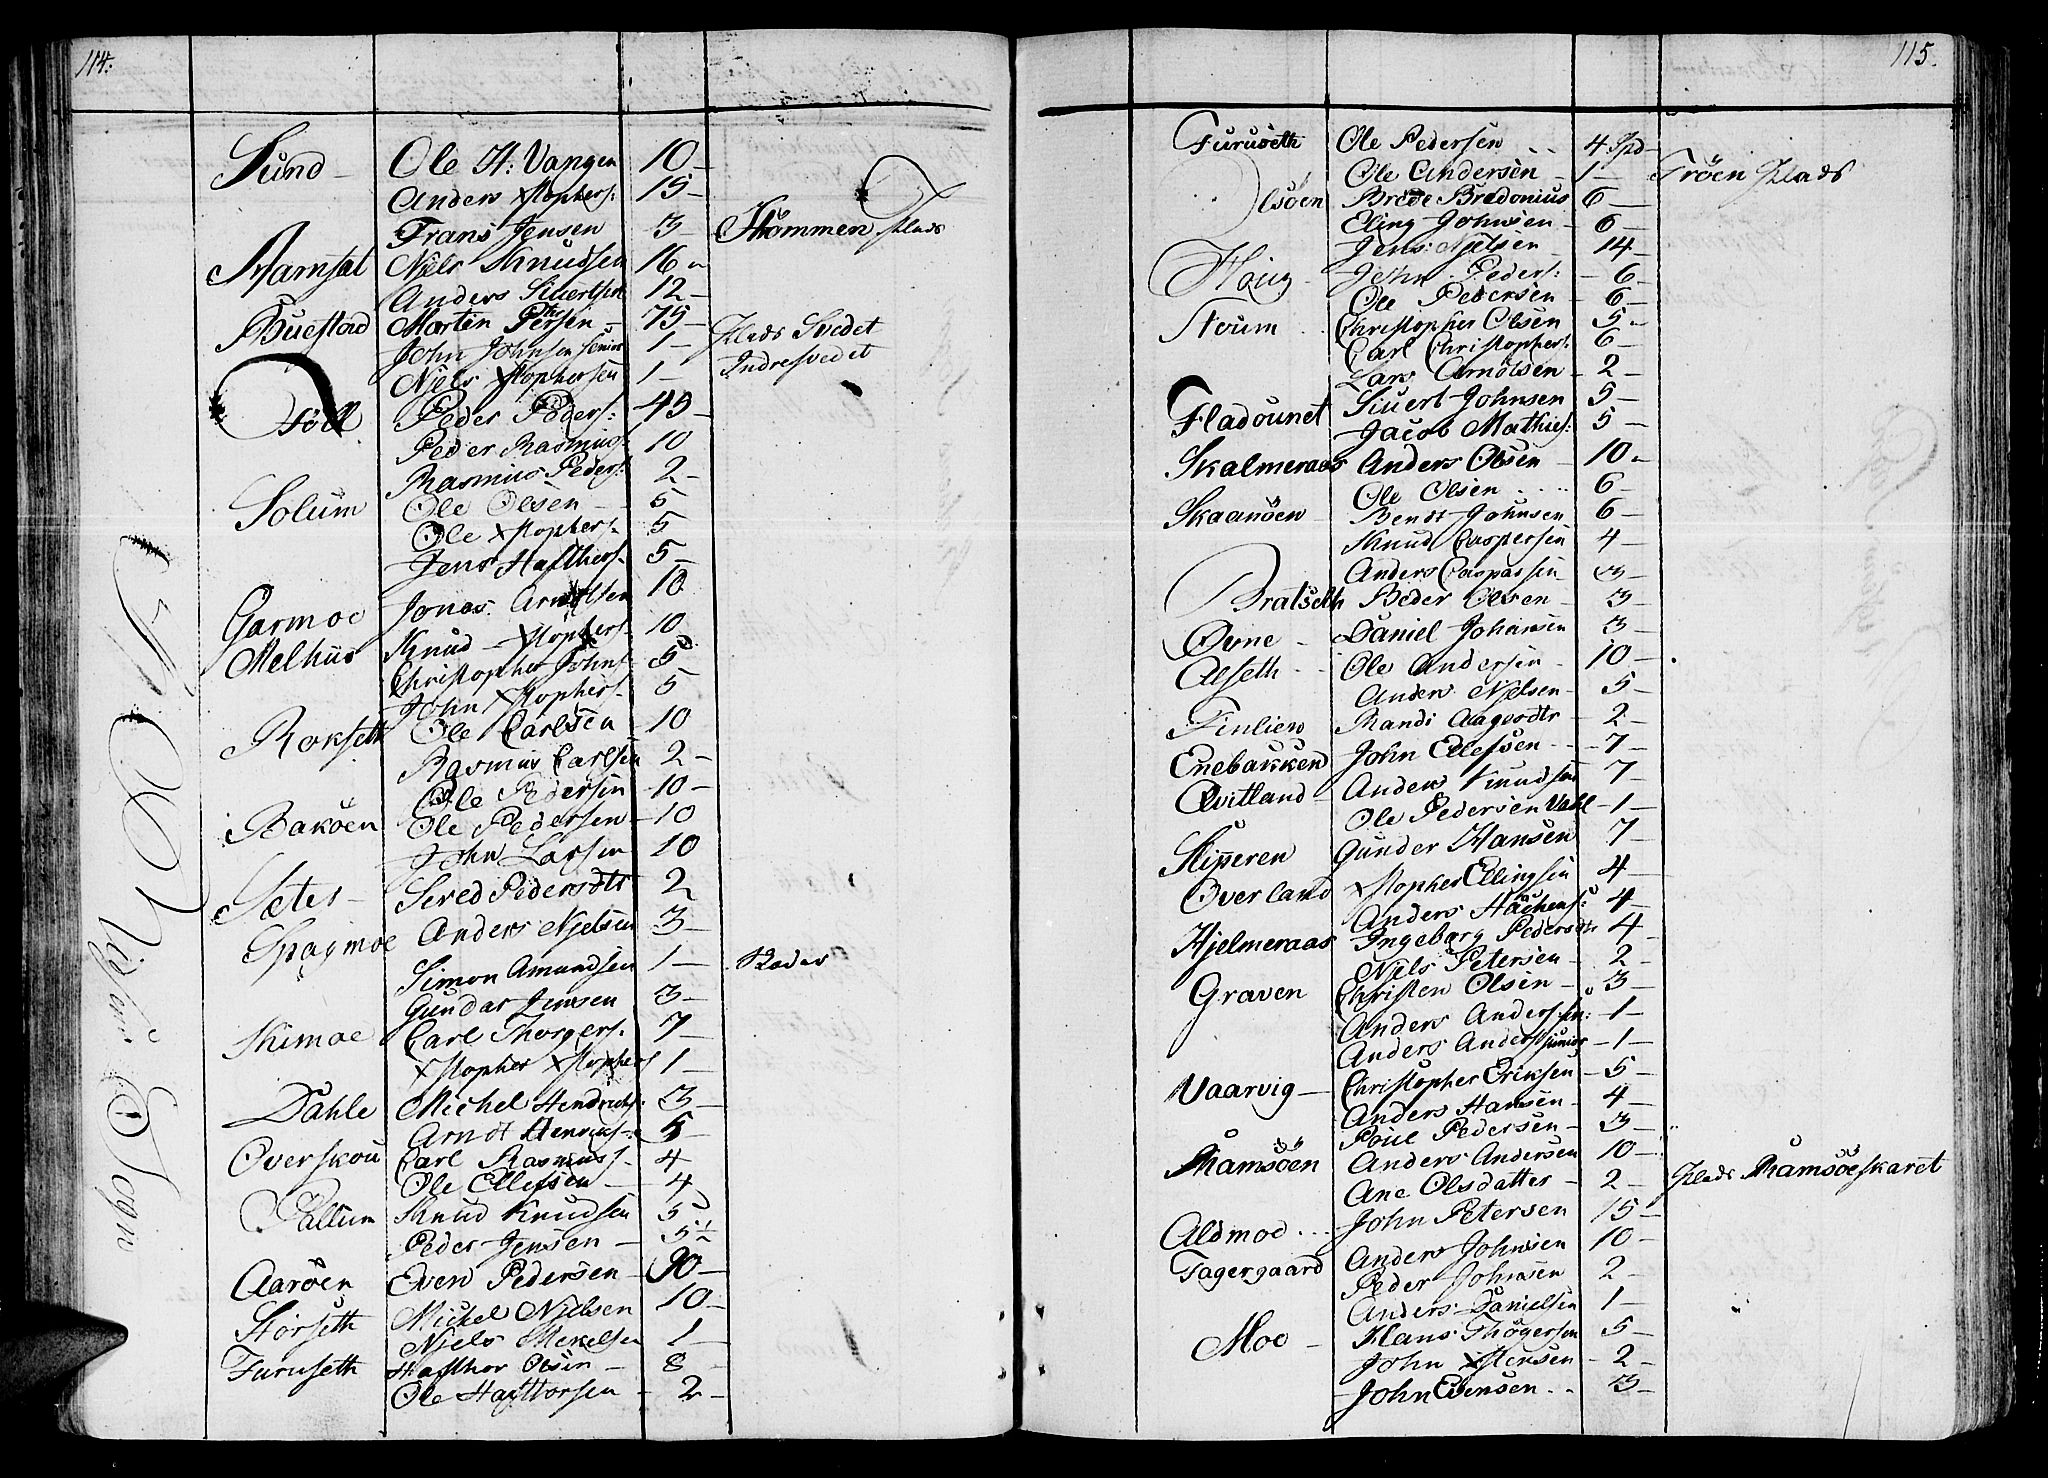 114.
Sund - Ole H: Vangen 10 -
Anders Xstophers: 15 -
Frans Jensen 3 - Plads
Ramsøl Niels Knudsen 16 -
Anders Siuertsen 12 -
Buestad Martin Persen - 75 - Plads Svedet
John Johnsen senior 1 - Indresvedet
Niels Xstophersen 1 -
Peder Peders: 45 -
Peder Rasmus: 10
Rasmus Peders: 2 -
Solum Ole Olsen - 5
Ole Xstophers: 5
Jens Hafthers: 5 -
Garmoe Jonas Arndtsen 10
Melhus Knud Xstophers: 10
Christopher Johns: 5
John Xstophers: 5
Rokseth Ole Carlsen 10
Rasmus Carlsen 2 -
Ole Pedersen 10 -
Bakøen Ole Pedersen 10
John Larsen 10
Sæter - Sered Pedersdtr 2
Spagmoe Anders Njelsen 3 -
Simon Amundsen 1 -
Gundar Jensen 3 -
Skimoe Carl Thorgers: 7 -
Xstopher Xstophers 1 -
Dahle Michel Hendrichs: 3 -
Arndt Henriks: 5 -
Overskou Carl Rasmuss: 4
Ole Ellefsen - 4
Knud Knudsen 5
Peder Jensen - 5½
Aarøen Even Pedersen - 90 -
Storseth Michel Nielsen 10 -
Niels Mekelsen 1 -
Furuseth Hafthor Olsen - 8 -
Ole Hafttorsen - 2 -
Sogn
115.
Furuseth Ole Pedersen 4 Spd -
Ole Andersen - 1 - Trøen Plads
Olsøen Brede Bredonius 6 -
Eling Johnsen - 6 -
Houg Jens Njelsen - 14 -
John Peders: - 6 -
Ole Pedersen - 6 -
Christopher Olsen 5 -
Carl Christophers: 6 -
Lars Arnøtsen - 2 -
Fladøunet Siuert Johnsen 5 -
Jacob Mathies: 5 -
Skalmeraas Anders Olsen - 10 -
Ole Olsen 6 -
Skaanøen Bendt Johnsen 6 -
Knud Caspersen 4 -
Anders Caspersen 3 -
Bratseth Peder Olsen - 3 -
Øvne - Daniel Johansen 3 -
Alseth Ole Andersen - 10 -
Anders Njelsen - 5 -
Finlien Randi Aagvodtr - 2 -
Enebakken John Ellefsen - 7 -
Qvitland Anders Knudsen 7 -
Ole Pedersen Vahl - 1 -
Slipperen Gunder Hansen 7 -
Overland Xstopher Ellingsen 4 -
Anders 4 -
Hjelmeraas Ingeborg Pedersdtr 4 -
Niels Petersen - 2 -
Graven Christen Olsen - 3 -
Anders Andersen: - 1 -
Anders Anders: junior - 1 -
Vaarvig - Christopher Eriksen - 5 -
Anders Hansen - 4 -
Poul Pedersen - 3 -
Ramsøen Anders Andersen 10 -
Ane Olsdatter - 2 - Plads Ramsøeskaret
Aldmoe John Petersen 15 -
Fagergaard Anders Johnsen 10 -
Peder Johnsen 2 -
Anders Danielsen 1 -
Moe - Hans Thøgersen 5 -
John Xstensen - 2 -
John Evensen 3 -